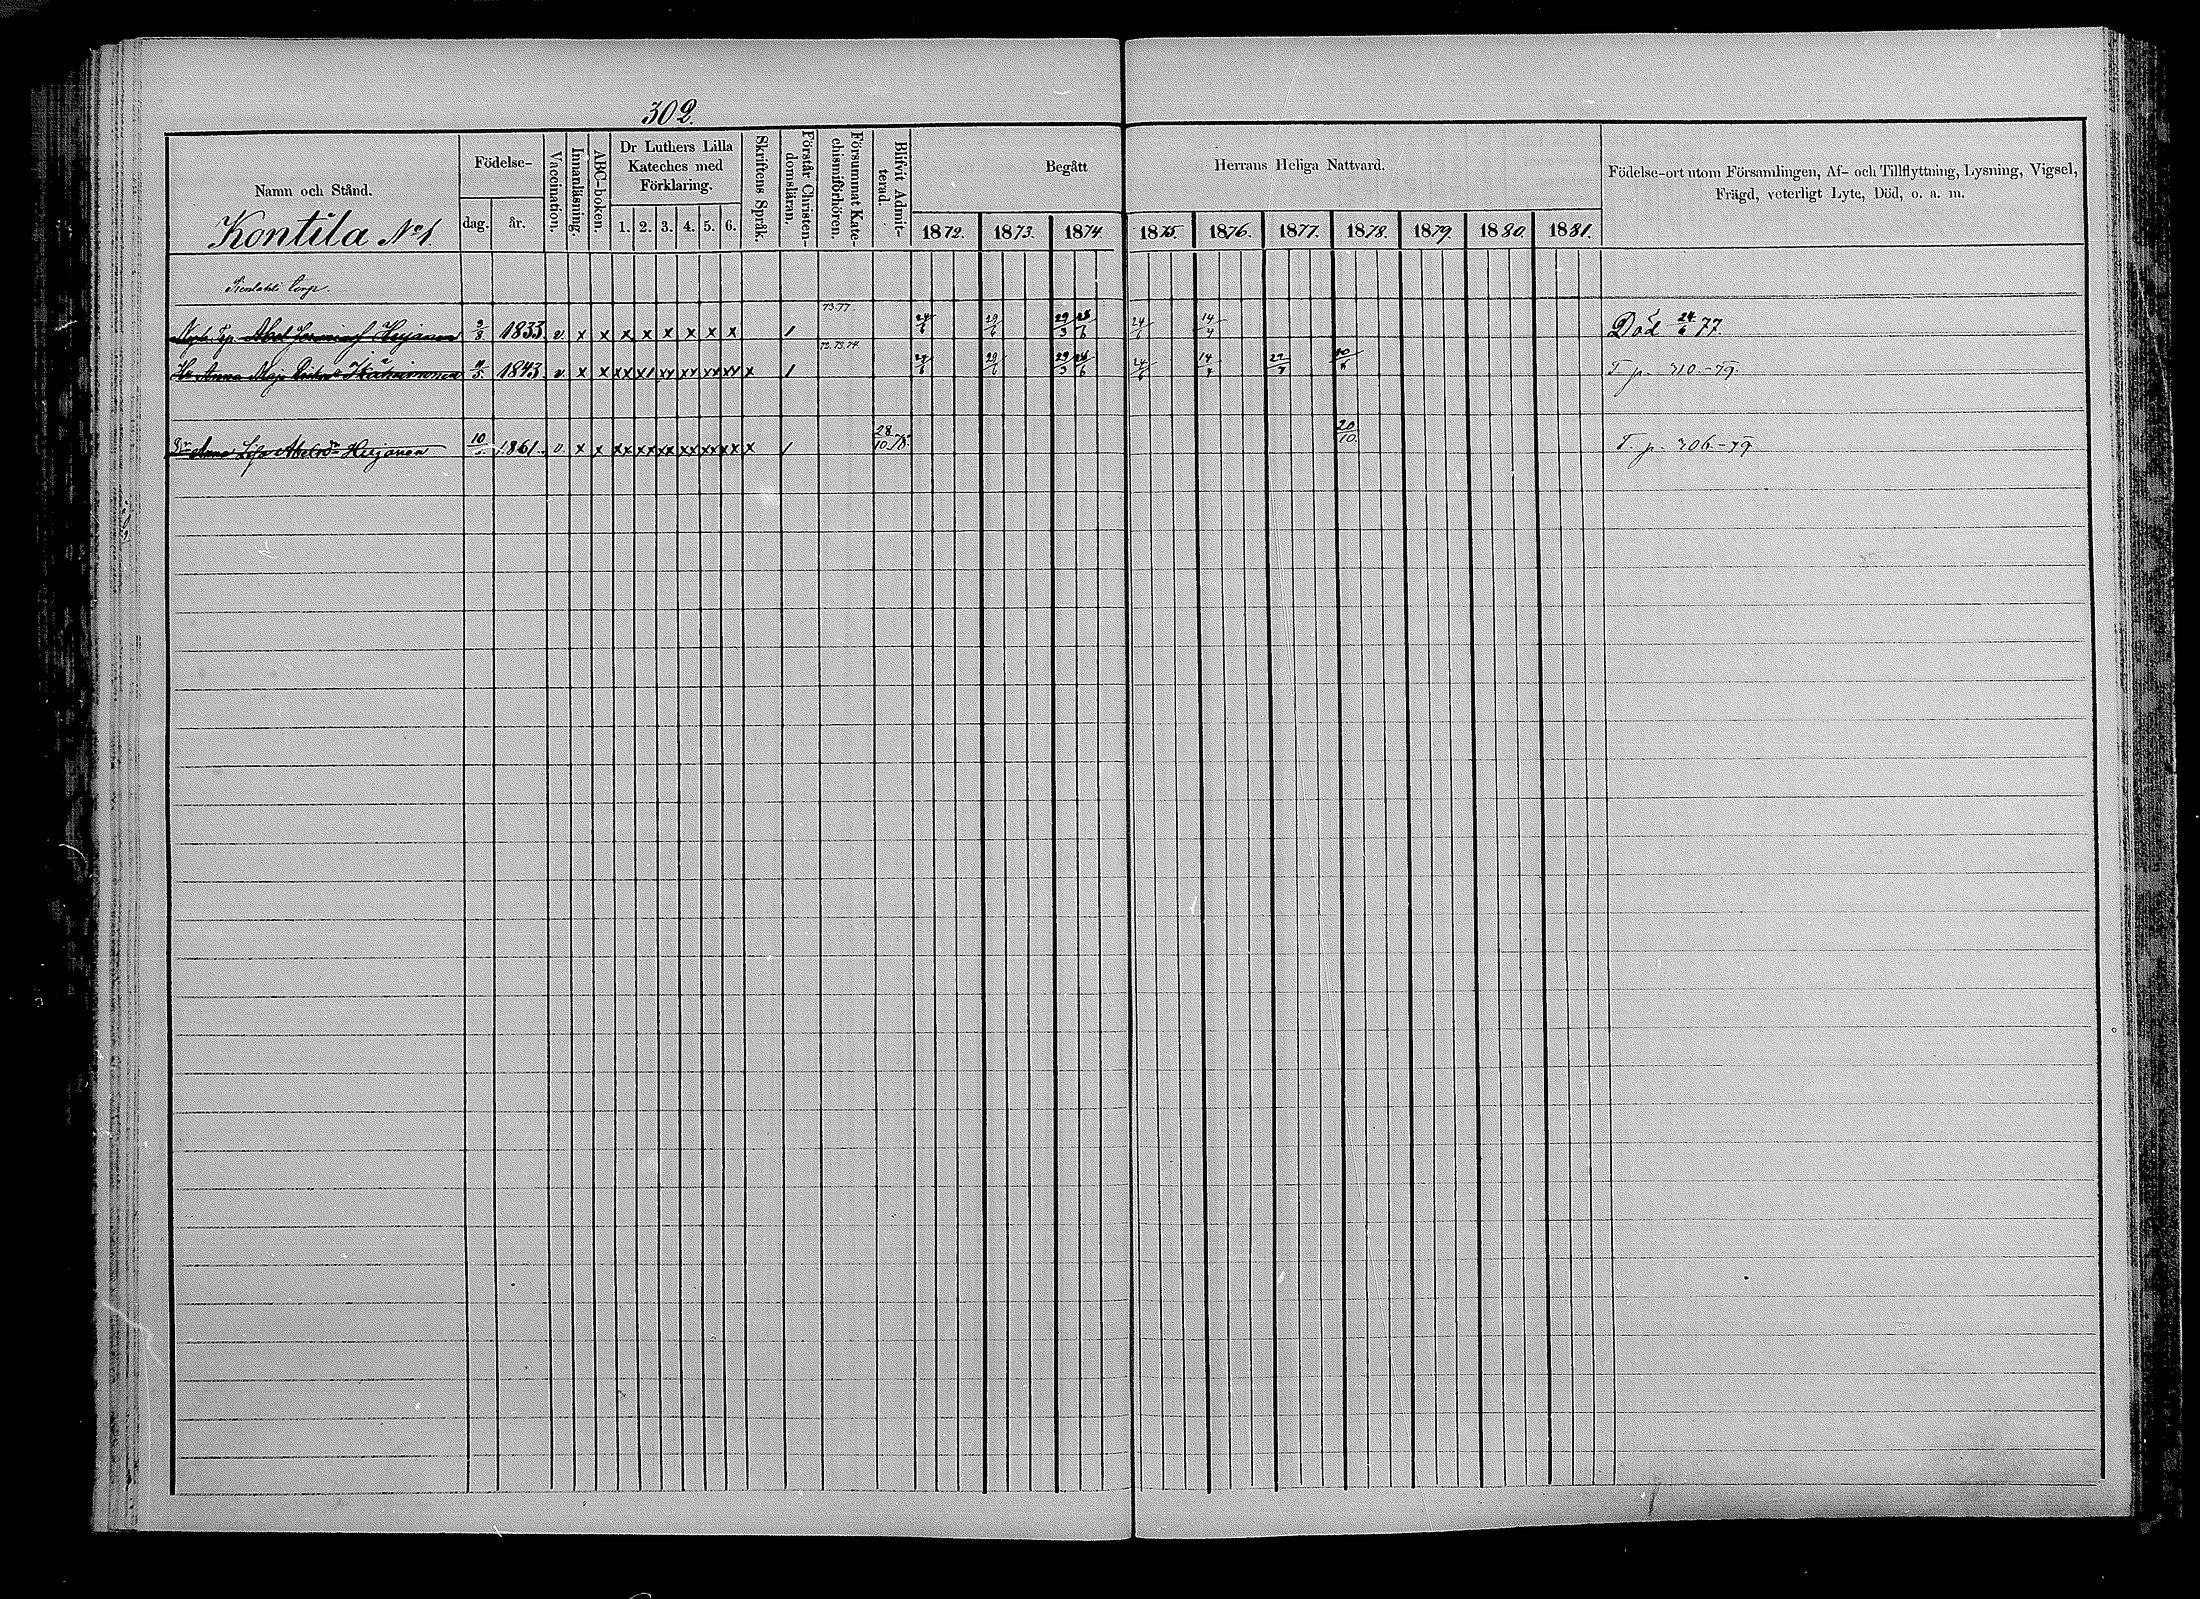 302.
Namn och Stånd.
Födelse-
dag. år.
Vaccination.
Innanläsning.
ABC-boken.
Dr Luthers Lilla
Kateches med
Förklaring.
1. 2. 3. 4. 5. 6.
Skriftens Språk.
Förstår Christen-
domsläran.
Försummat Kate-
chismiförhören.
Blifvit Admit-
terad.
Begått Herrans Heliga Nattvard.
1872. 1873. 1874. 1875. 1876. 1877. 1878. 1879. 1880. 1881.
Födelse-ort utom Församlingen, Af- och Tillflyttning, Lysning, Vigsel,
Frägd, veterligt Lyte, Död, o. a. m.
Kontila No 1.
73.77.
Abel Heijanen 1833. v. x x x x x x x x 1 24/6 29/6 29/3 24/6 14/4 Död 24/6 77.
72.73.74.
Hu Anna Maja 1843. v. x x xx x1 xx xx xx xx x 1 29/6 29/3 24/6 24/6 T. p. 310.-79.
Anna Lisa Abelsdr Heijanen 10/ 1861. v. x x xx xx xx xx xx xx x 1 28/10 78. 20/10. T. p. 306.-79.